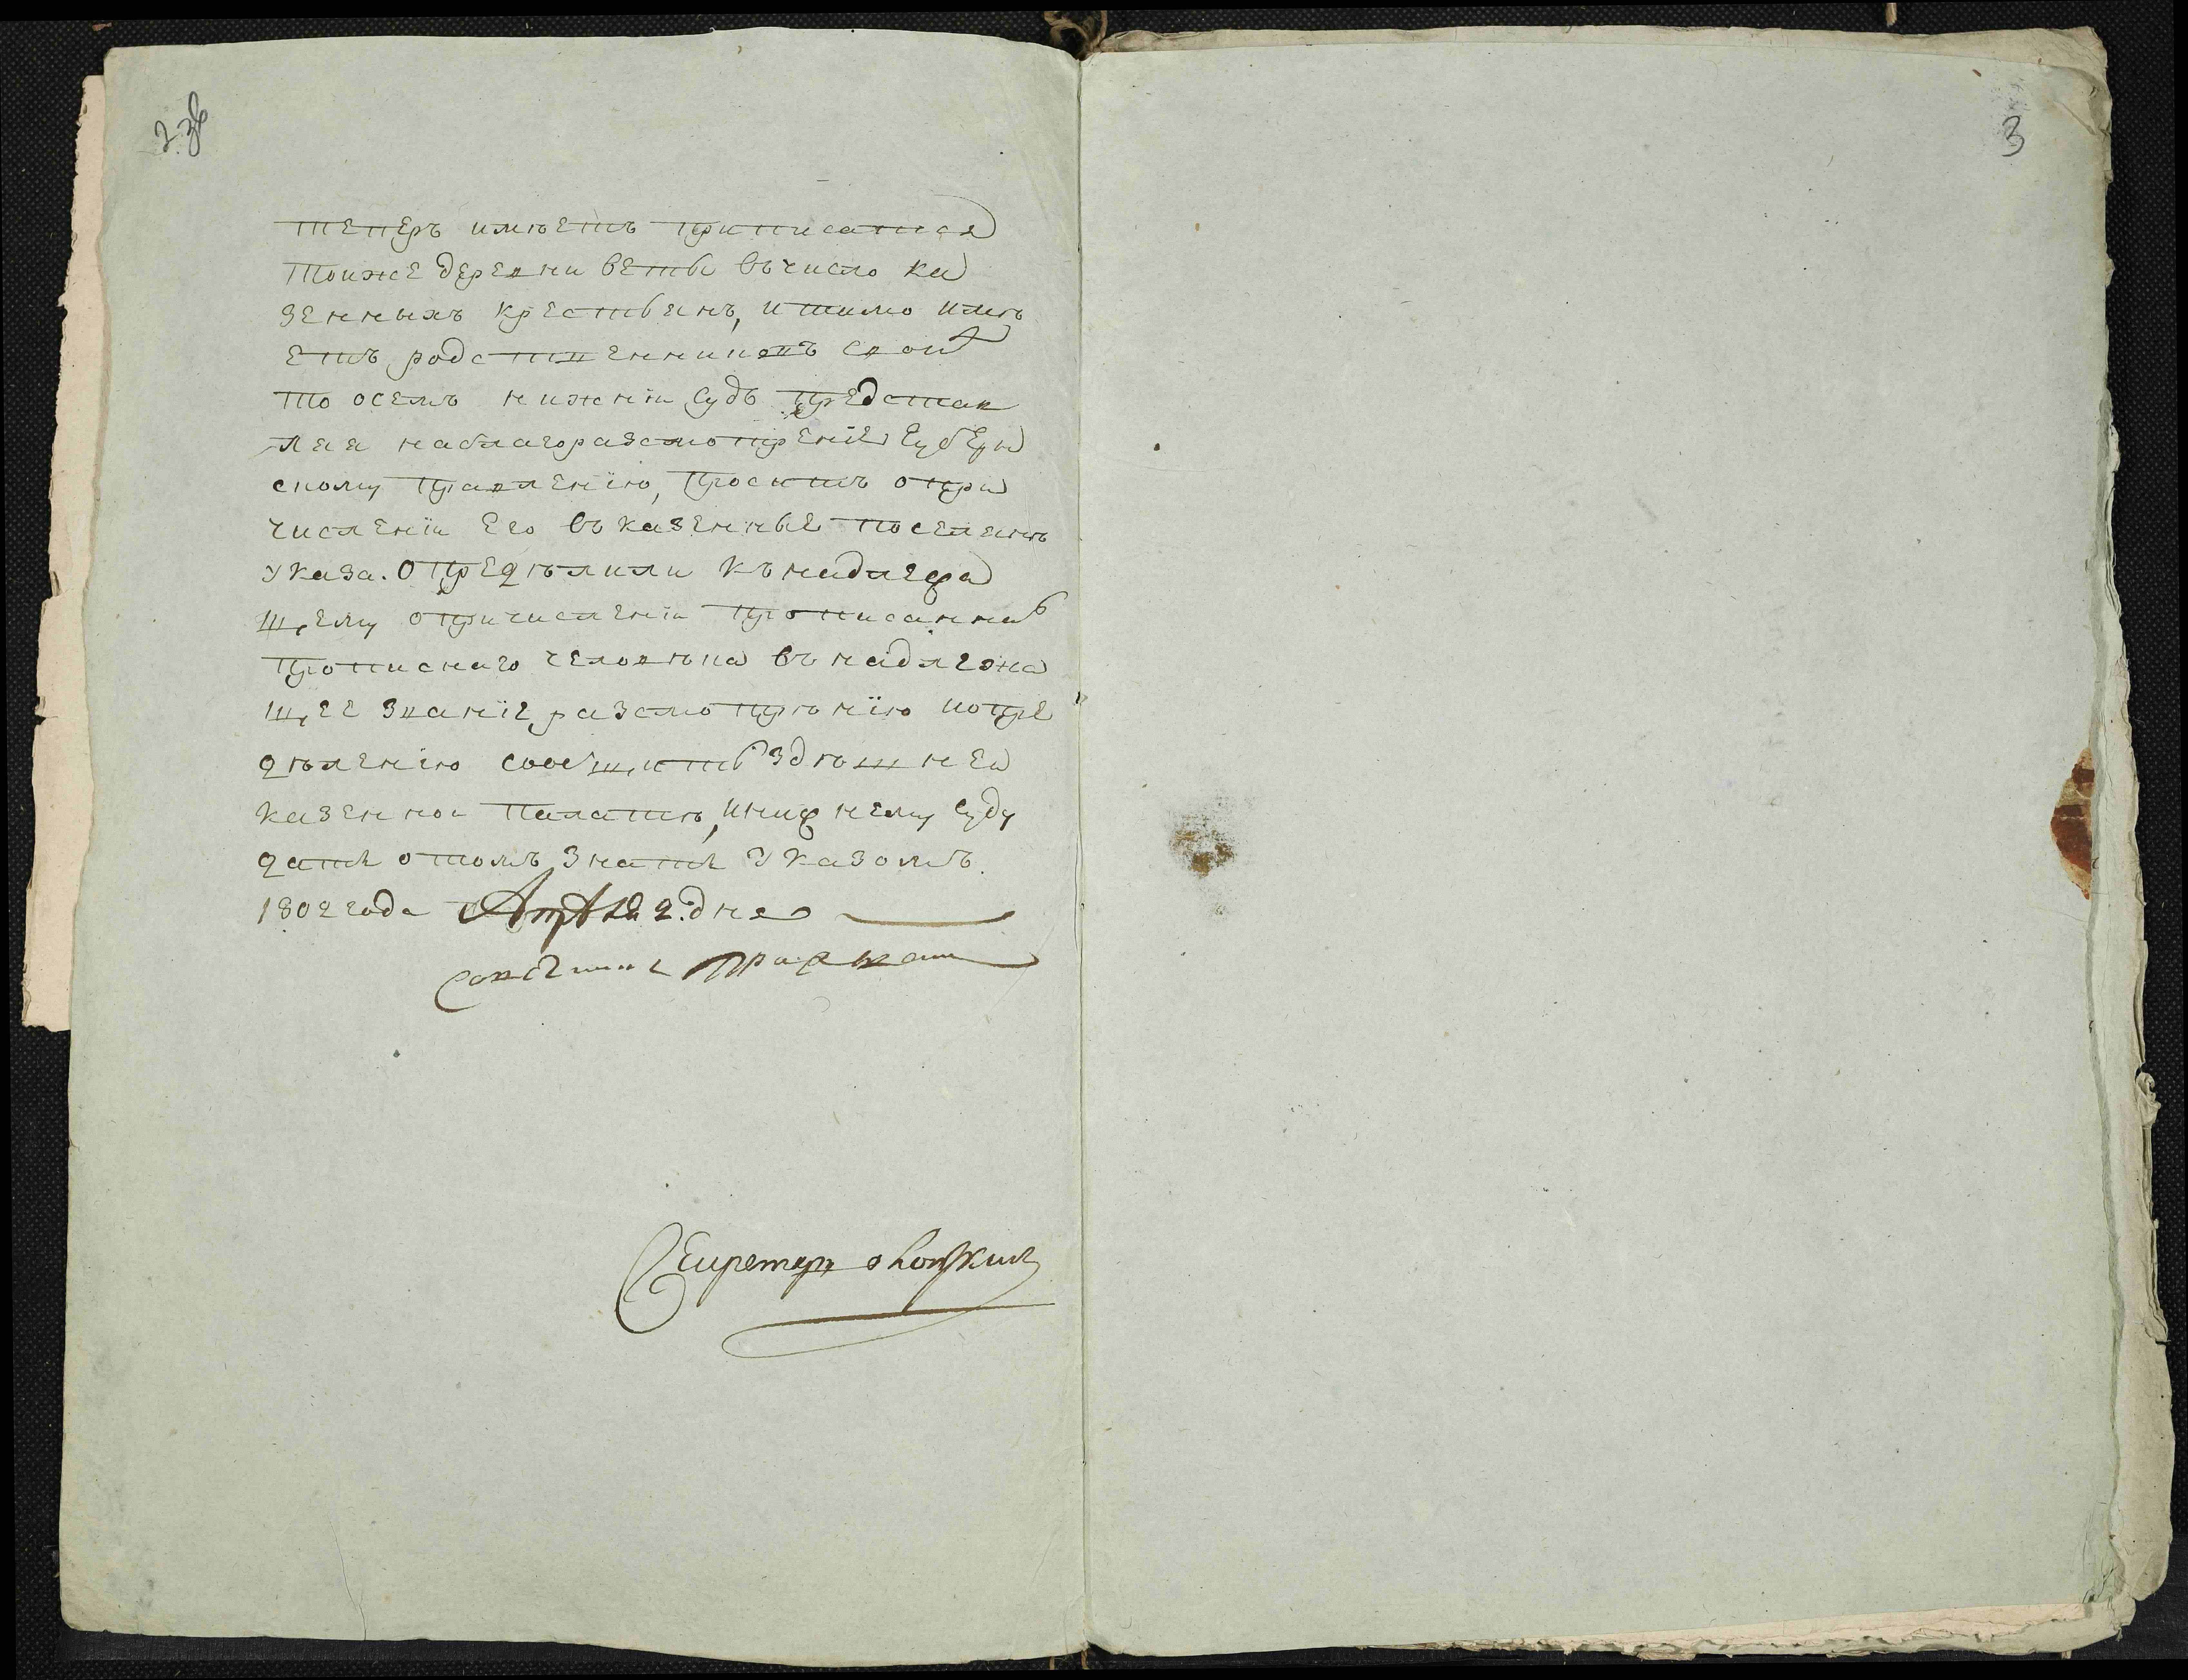 теперъ имѣетъ приписатися
тойже деревни веты въчисло ка
зенныхъ крестьянъ, итамо имѣ
етъ родственниковъ своих
то осемъ нижніи судъ представ
ляя наблагоразсмотреніе губерн
скому правленію, проситъ опри
численіи его въказенные поселянѣ
указа. Опредѣлили къ надлежа
щему опричисленіи
прописнаго человѣка въ надлежа
щее званіе разсмотрѣнію иопре
дѣленію сообщить здѣшней
казенной палатѣ, инижнему суду
дать отомъ знать указомъ.
1802 года Апрѣля 2. дня
Советникъ
Секретарь
3